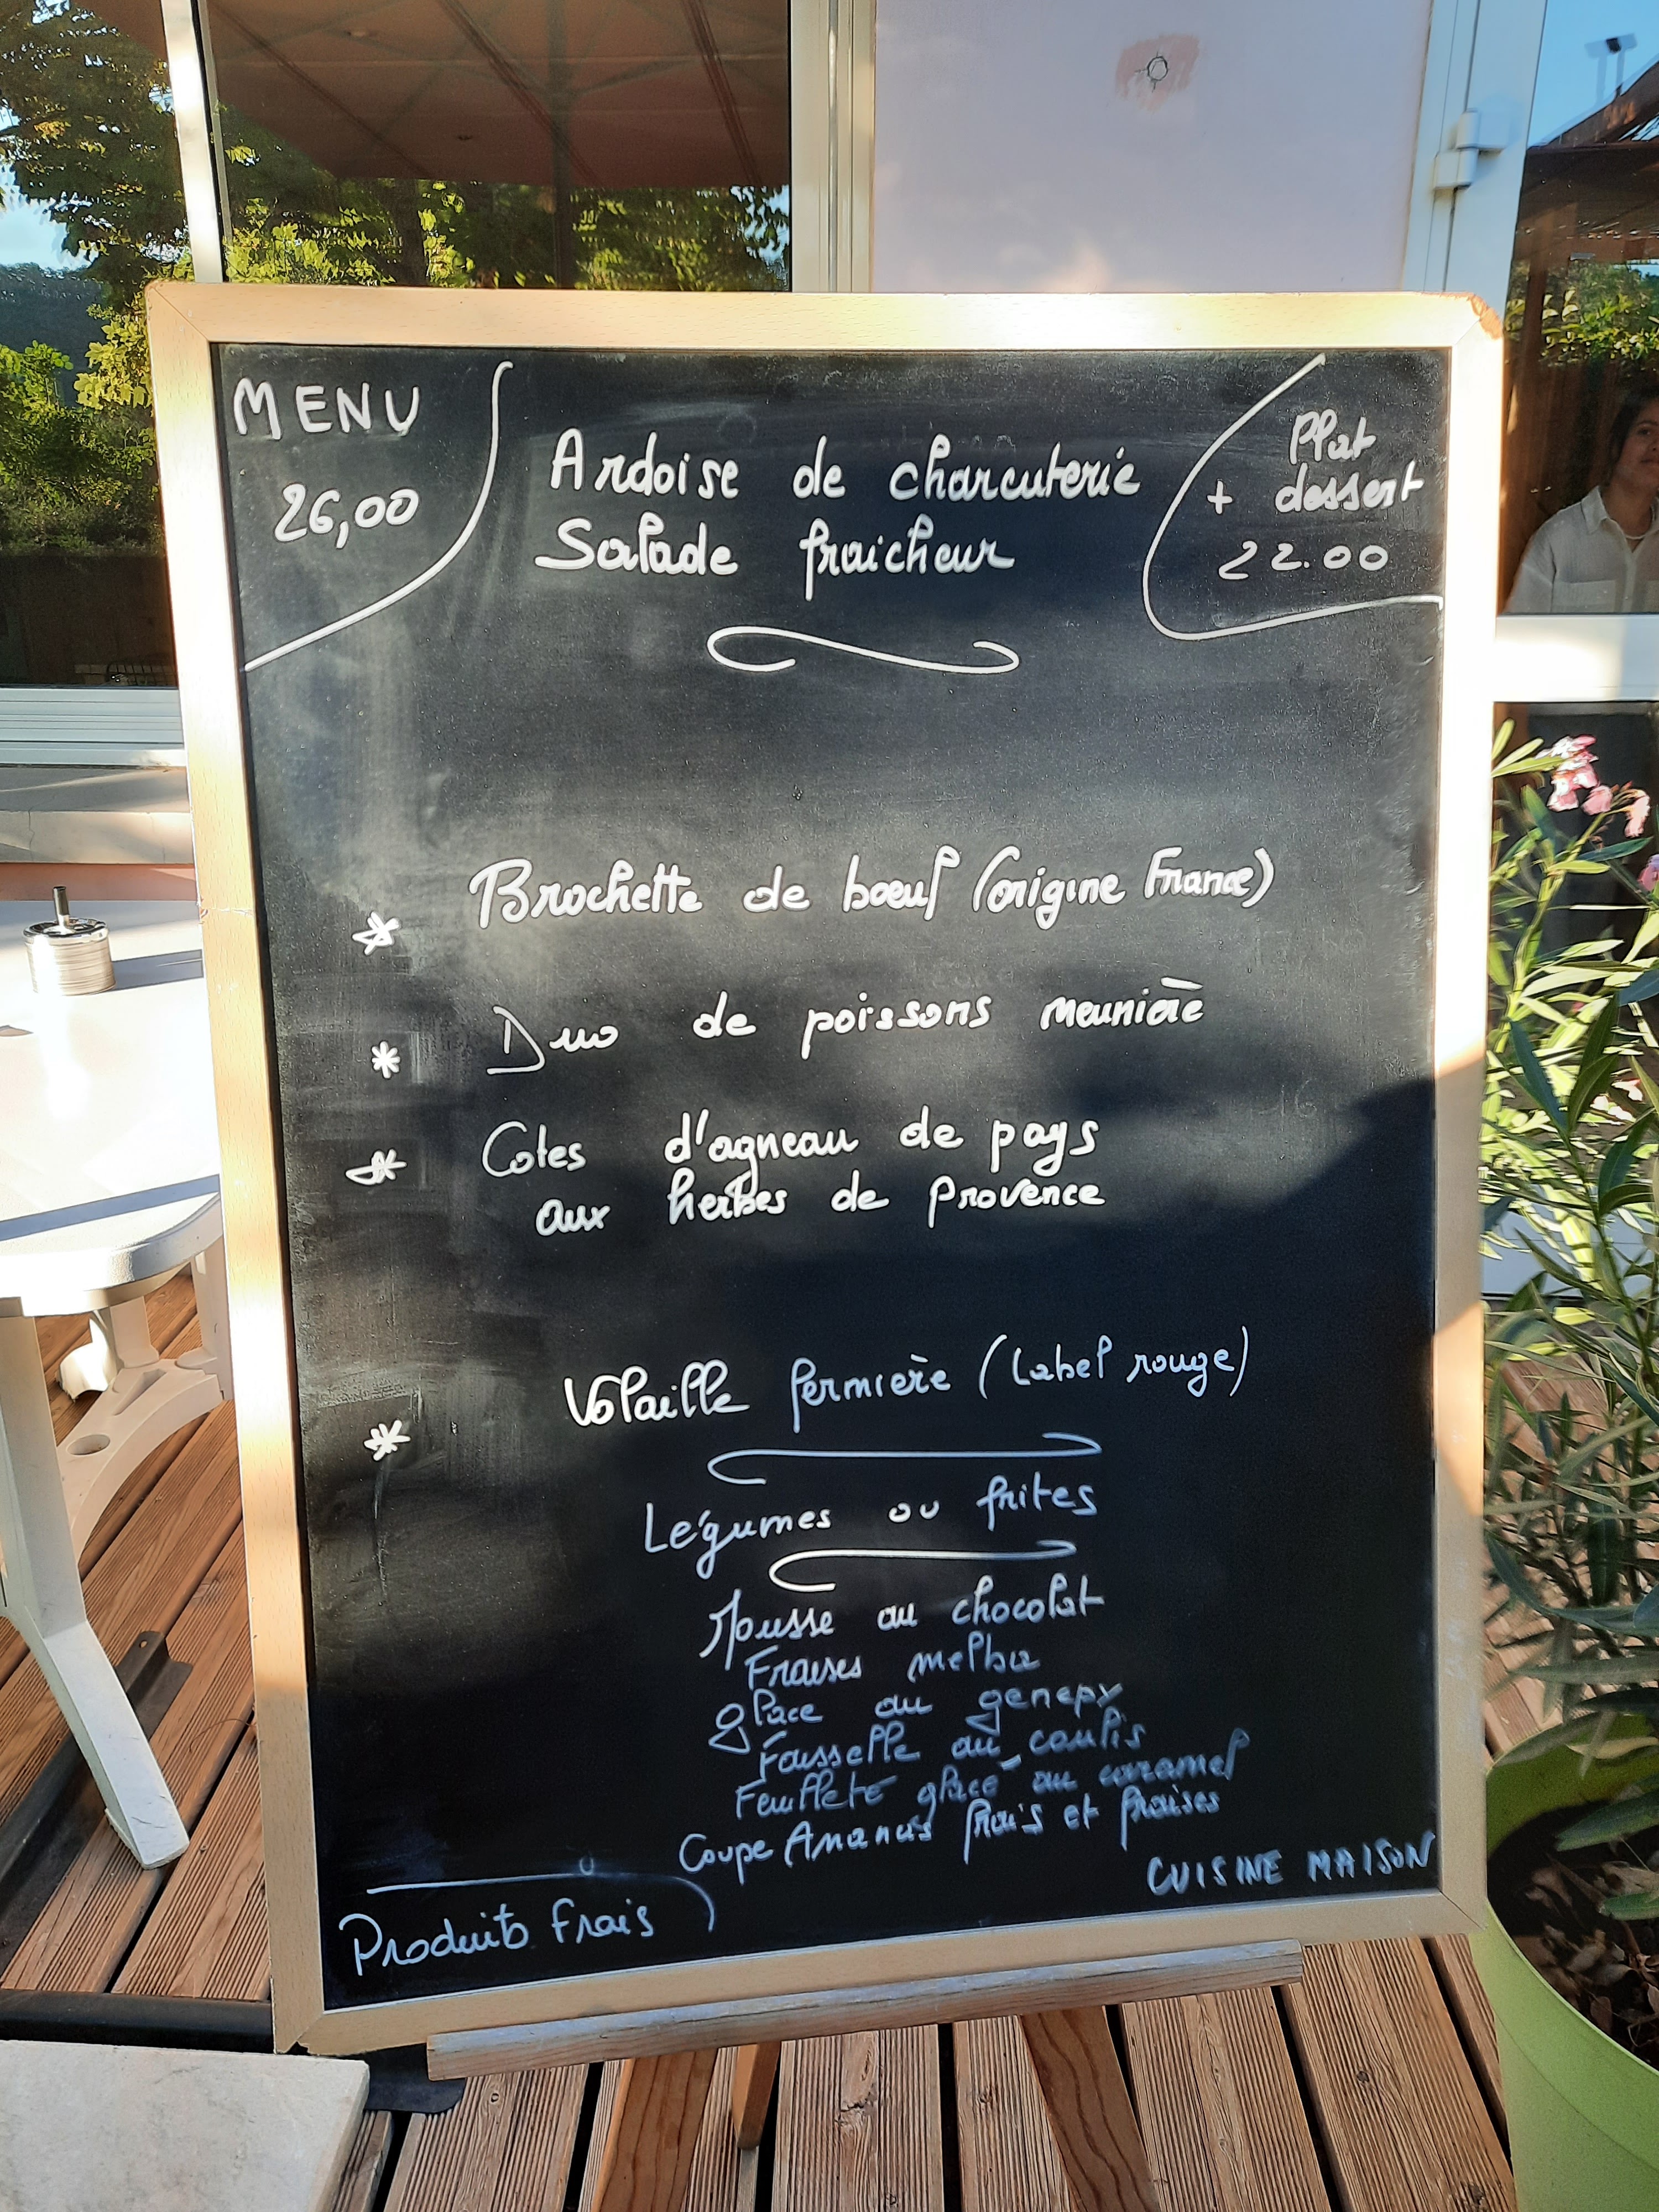 MENU
26,00
Ardoise de charcuterie
Salade fraicheur
Plat
+ dessert
22.00
* Brochette de bœuf (origine France)
* Duo de poissons meunière
* Cotes d'agneau de pays
aux herbes de Provence
* Volaille fermière (Label rouge)
Légumes ou frites
Mousse au chocolat
Fraises melba
glace au genepy
Faisselle au coulis
Feuilleté glacé au caramel
Coupe Ananas frais et fraises
CUISINE MAISON
Produits frais